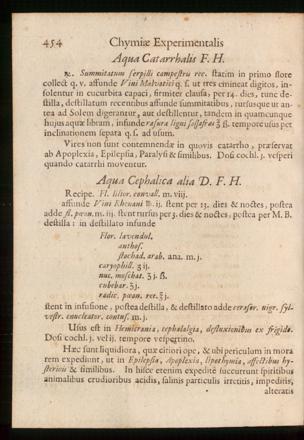 454
Chymiæ Experimentalis
Aqua Catarrhalis F. H.
℞. Summitatum serpilli campestris rec. statim in primo flore
collect q. v. affunde Vini Malvatici q. s. ut tres emineat digitos, in-
solentur in cucurbita capaci, firmiter clausa, per 14. dies, tunc de-
stilla, destillatum recentibus affunde summitatibus, rursusque ut an-
tea ad Solem digerantur, aut destillentur, tandem in quamcunque
hujus aquæ libram, infunde rasuræ ligni sassafras ℥ ß. tempore usus per
inclinationem separa q. s. ad usum.
Vires non sunt contemnendæ in quovis catarrho, præservat
ab Apoplexia, Epilepsia, Paralysi & similibus. Dosi cochl. j. vesperi
quando catarrhi moventur.
Aqua Cephalica alia D. F. H.
Recipe. Fl. lilior. convall. m. viij.
affunde Vini Rhenani ℔. ij. stent per 13. dies & noctes, postea
adde fl. pæon. m. iij. stent rursus per 3. dies & noctes, postea per M. B.
destilla: in destillato infunde
Flor. lavendul.
anthos.
stœchad. arab. ana. m. j.
caryophill. ʒ ij.
nuc. moschat. ʒ j. ß.
cubebar. ʒ j.
radic. pæon. rec. ℥ j.
stent in infusione, postea destilla, & destillato adde cerasor. nigr. syl-
vestr. enucleator. contus. m. j.
Usus est in Hemicrania, cephalalgia, destuxionibus ex frigido.
Dosi cochl. j. vel ij. tempore vespertino.
Hæc sunt liquidiora, quæ citiori ope, & ubi periculum in mora
rem expediunt, ut in Epilepsia, Apoplexia, Lipothymia, affectibus hy-
stericis & similibus. In hisce etenim expedite succurrunt spiritibus
animalibus crudioribus acidis, salinis particulis irretitis, impeditis,
alteratis